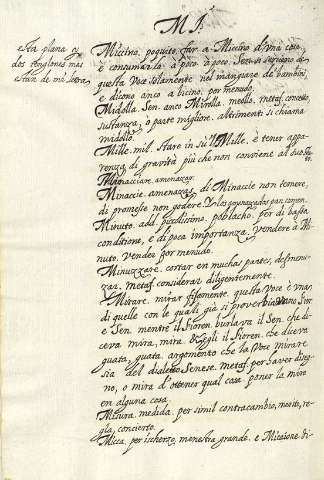 MI.
Esta plana y
dos renglones mas
estan de mi letra
Miccino. poquito, far a Miccino d'una cosa,
è consumarla à poco à poco. Senesi servono di
questa Voce solamente nel mangiare de bambini,
e dicono anco a bicino. per menudo.
Midolla. Sen. anco Mirolla. medlo, metaf. concetto,
sustanza, ò parte migliore. altrimenti si chiama
midollo.
Mille. mil. Stare in su'l Mille. è tener appa-
renza di gravità più che non conviene al suo
Minacciare. amenazar.
Minaccie. amenazas. di Minaccie non temere,
di promesse non godere.
Minuto. add. piccolissimo. popolacho. per di bassa
conditione, e di poca importanza. Vendere a Mi-
nuto. Vender por menudo.
Minuzzare. cortar en muchas partes, desmenu-
zar. metaf. considerar diligentemente.
Mirare. mirar fijamente. questa Voce è una
di quelle con le quali già si proverbiavano Fior.
e Sen. mentre il Fioren. burlava il Sen. che di-
ceva mira, mira. Et egli il Fioren. che diceva
guata, guata. argomento che la Voce mirare
sia del dialetto Senese. metaf. per haver diseg-
no, o mira d'ottener qual cosa. poner la mira
en alguna cosa.
Misura. medida. per simil. contracambio, merito, re-
gla, concierto.
Micca. per ischerzo, menestra grande. e Miccione di-